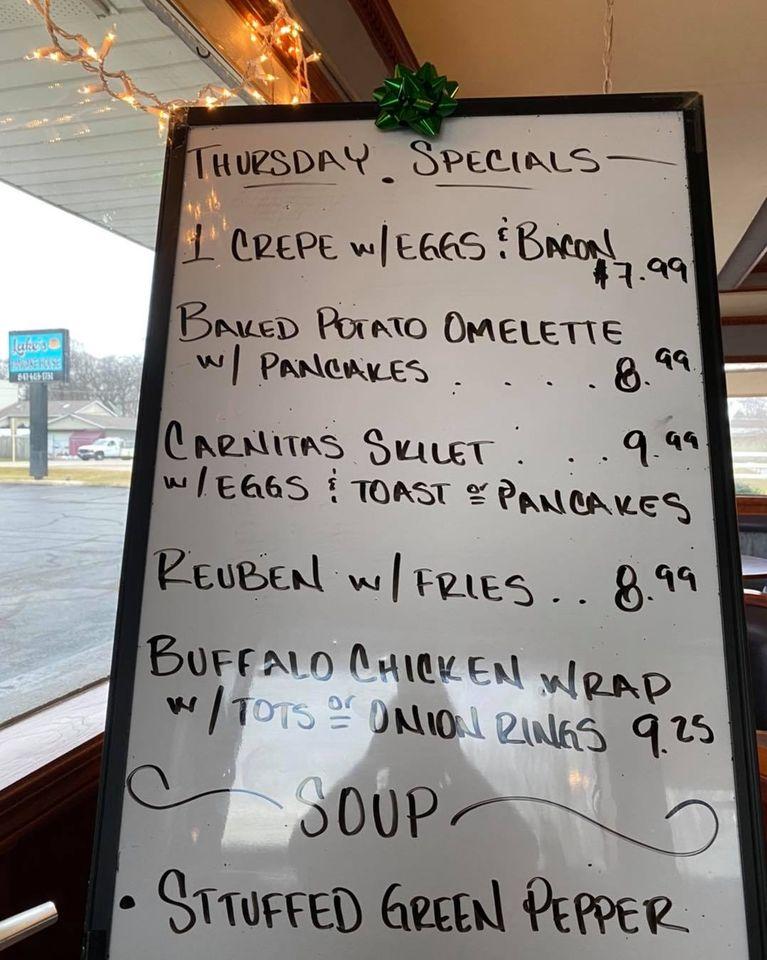 THURSDAY. SPECIALS—
1 CREPE w/EGGS & BACON
$7.99
BAKED POTATO OMELETTE
w/ PANCAKES . . . . 8.99
CARNITAS SKILET . . . 9.99
w/EGGS & TOAST or PANCAKES
REUBEN w/FRIES . . 8.99
BUFFALO CHICKEN WRAP
w/TOTS or ONION RINGS 9.25
SOUP
• STTUFFED GREEN PEPPER
Luke's
PANCAKE HOUSE